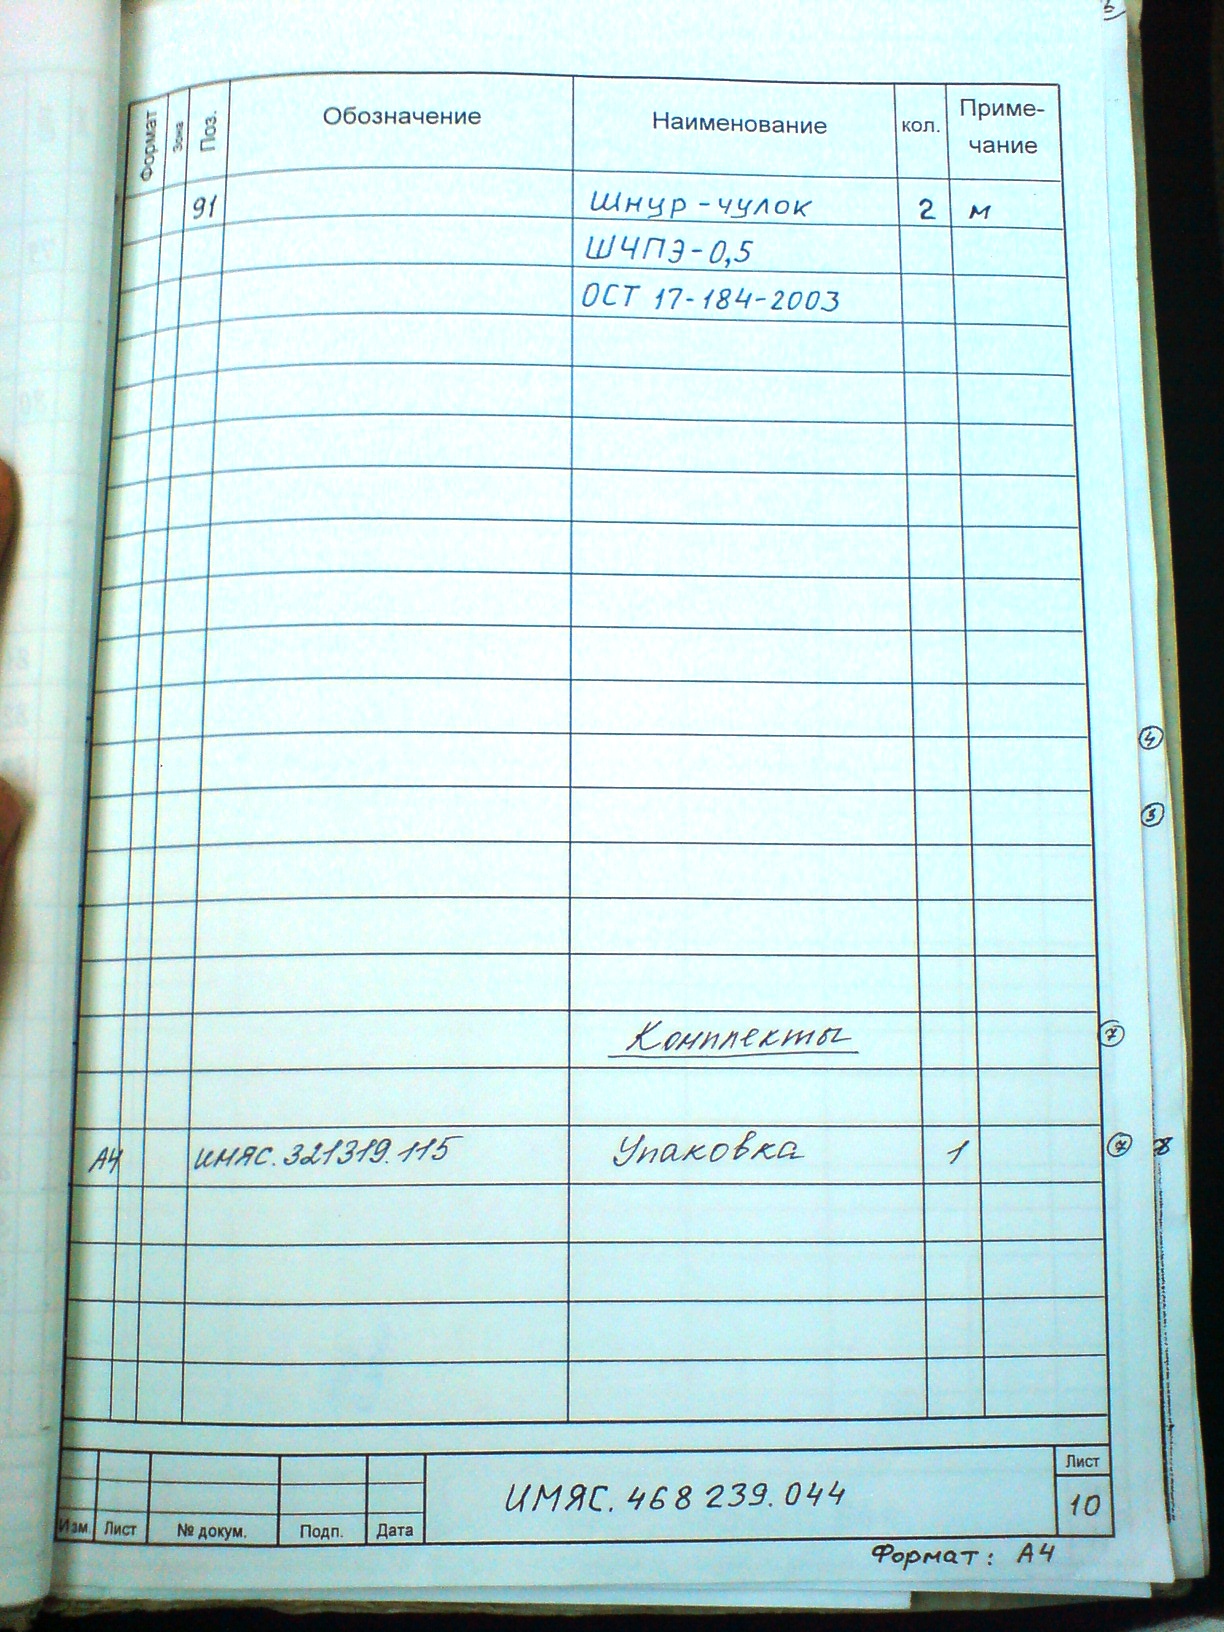 Формат Зона Поз. Обозначение Наименование кол. Приме-
чание
91 Шнур-чулок 2 м
ШЧПЭ-0,5
ОСТ 17-184-2003
4
3
Комплекты 7
А4 ИМЯС.321319.115 Упаковка 1 7 8
Лист
ИМЯС.468239.044 10
Изм. Лист № докум. Подп. Дата
Формат: А4